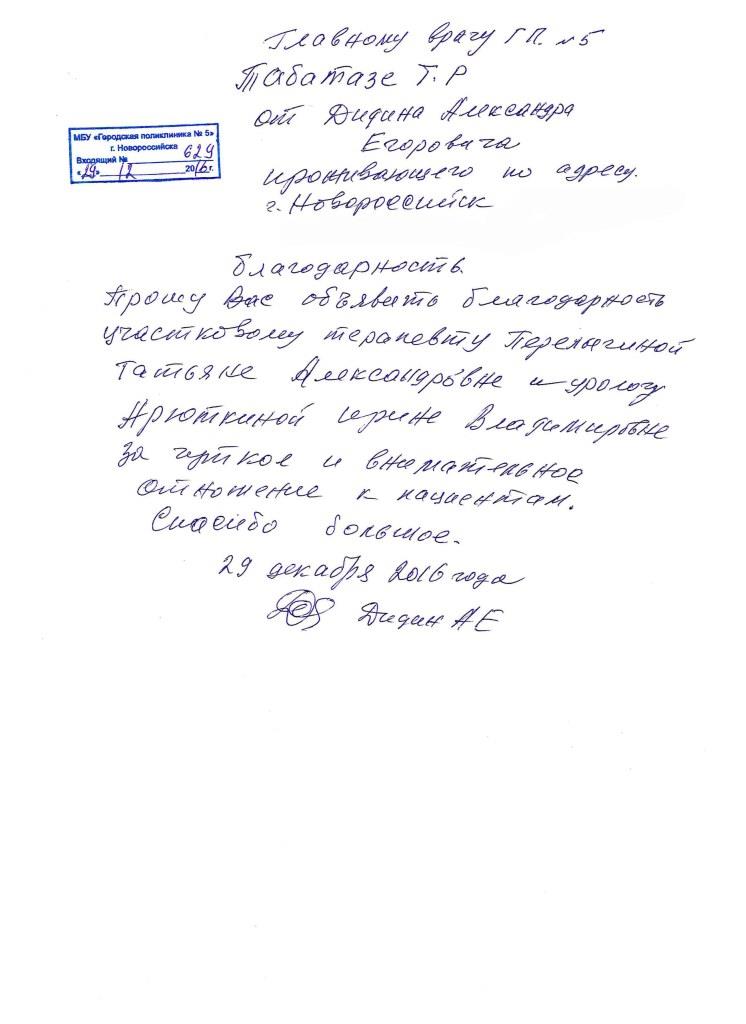 Главному врачу ГП. №5
Табатазе Т.Р
от Дидина Александра
Егоровича
проживающего по адресу.
г. Новороссийск
МБУ «Городская поликлиника № 5»
г. Новороссийска
Входящий № 629
«29» 12 2016 г.
благодарность.
Прошу Вас объявить благодарность
участковому терапевту Перелыгиной
Татьяне Александровне и урологу
Арюткиной Ирине Владимировне
за чуткое и внимательное
отношение к пациентам.
Спасибо большое.
29 декабря 2016 года
Дидин АЕ